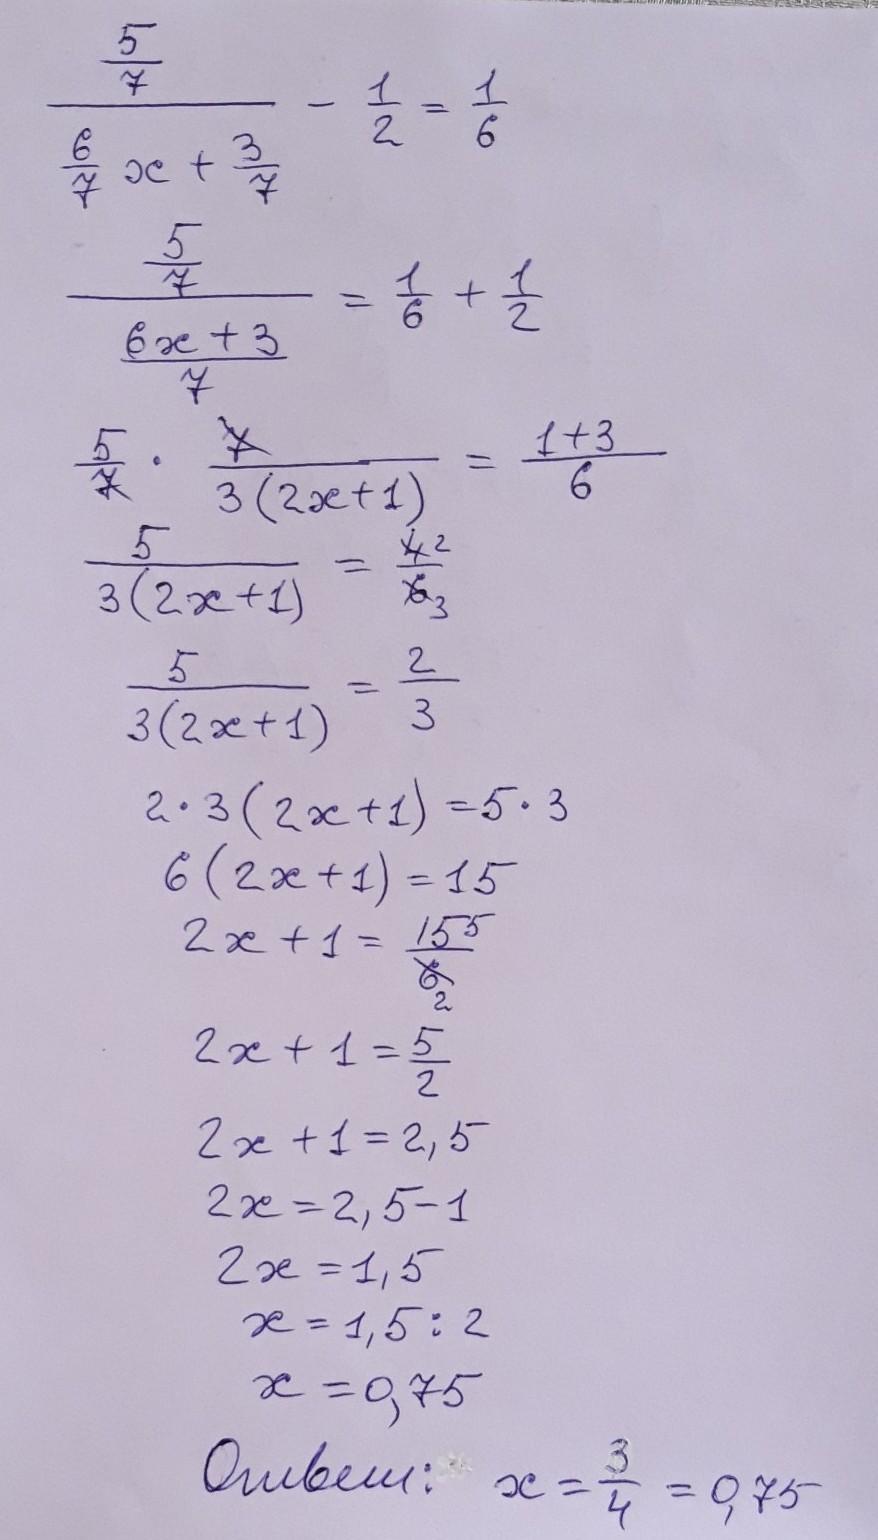 5/7 / (6/7 x + 3/7) - 1/2 = 1/6
5/7 / ((6x + 3)/7) = 1/6 + 1/2
5/7 · 7/(3(2x+1)) = (1+3)/6
5/(3(2x+1)) = 4 2/6 3
5/(3(2x+1)) = 2/3
2·3(2x+1) = 5·3
6(2x+1) = 15
2x + 1 = 15 5/6 2
2x + 1 = 5/2
2x + 1 = 2,5
2x = 2,5 - 1
2x = 1,5
x = 1,5 : 2
x = 0,75
Ответ: x = 3/4 = 0,75